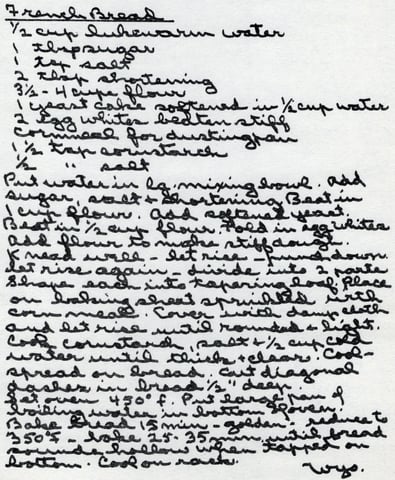 French Bread
1/2 cup lukewarm water
1 tbsp sugar
1 tsp salt
2 tbsp shortening
3 1/2 - 4 cup flour
1 yeast cake softened in 1/2 cup water
2 egg whites beaten stiff
cornmeal for dusting pan
1 1/2 tsp cornstarch
1/2 " salt
Put water in lg. mixing bowl. Add
sugar, salt & shortening Beat in
1 cup flour. Add softened yeast.
Beat in 1/2 cup flour. Fold in egg whites
Add flour to make stiff dough.
Knead well - let rise - punch down.
let rise again - divide into 2 parts
Shape each into tapering loaf. Place
on baking sheet sprinkled with
corn meal. Cover with damp cloth
and let rise until rounded & light.
Cook cornstarch, salt & 1/2 cup cold
water until thick & clear. Cool-
spread on bread. Cut diagonal
gashes in bread 1/2" deep.
Set oven 450°f. Put large pan of
boiling water in bottom of oven.
Bake bread 15 min - golden - reduce to
350°f - bake 25-35 min. until bread
sounds hollow when tapped on
bottom. Cool on rack.
Wyo.